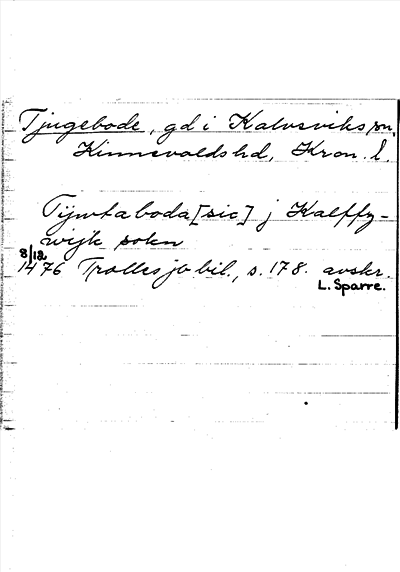 Tjugebode, gd i Kalvsviks sn,
Kinnevalds hd, Kron. l.
Tijwtaboda [sic] j Kalffz-
wijk sokn
8/12
1476 Trollesjö bil., s. 178. avskr.
L. Sparre.